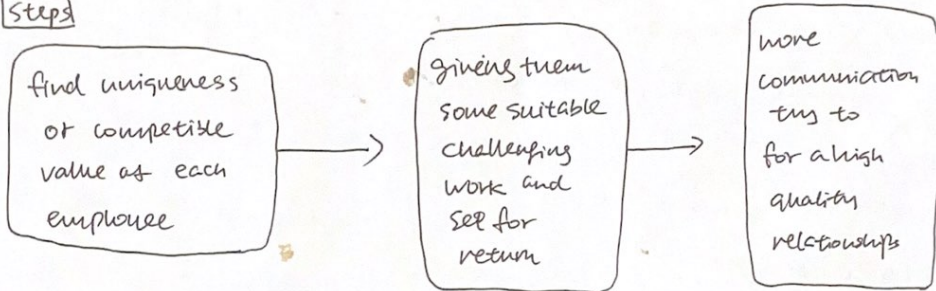 Steps
find uniqueness
or competible
value of each
employee
giveing them
some suitable
challenging
work and
see for
return
more
communication
try to
for a high
quality
relationships